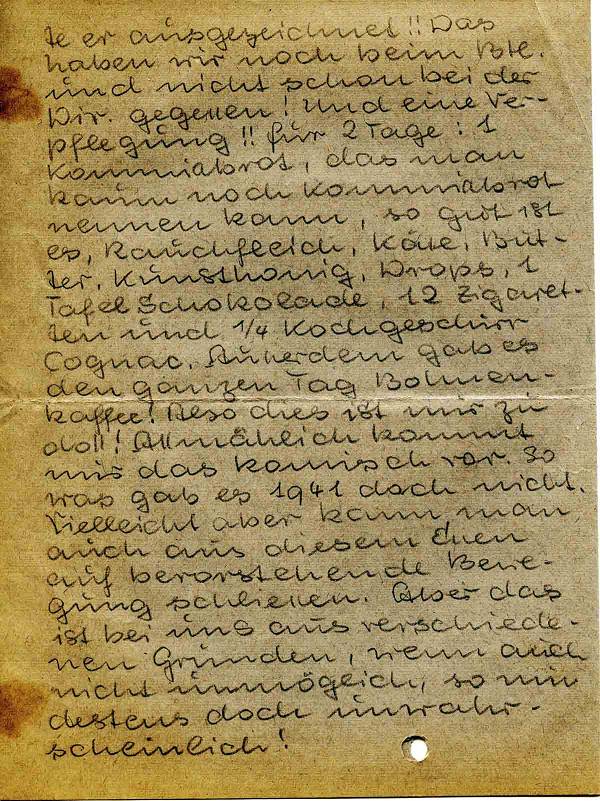 te er ausgezeichnet!! Das
haben wir noch beim Btl.
und nicht schon bei der
Div. gegessen! Und eine Ver-
pflegung!! für 2 Tage: 1
Kommißbrot, das man
kaum noch Kommißbrot
nennen kann, so gut ist
es, Rauchfleich, Käse, But-
ter, Kunsthonig, Drops, 1
Tafel Schokolade, 12 Zigaret-
ten und 1/4 Kochgeschirr
Cognac. Außerdem gab es
den ganzen Tag Bohnen-
kaffee! Also dies ist mir zu
doll! Allmählich kommt
mir das komisch vor. So
was gab es 1941 doch nicht.
Vielleicht aber kann man
auch aus diesem Essen
auf bevorstehende Bewe-
gung schließen. Aber das
ist bei uns aus verschiede-
nen Gründen, wenn auch
nicht unmöglich, so min
destens doch unwahr-
scheinlich!